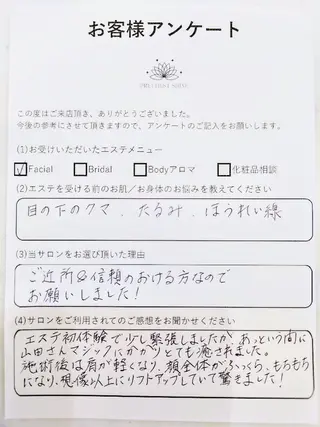 お客様アンケート
この度はご来店頂き、ありがとうございました。
今後の参考にさせて頂きますので、アンケートのご記入をお願いします。
(1)お受けいただいたエステメニュー
Facial Bridal Bodyアロマ 化粧品相談
(2)エステを受ける前のお肌／お身体のお悩みを教えてください
目の下のクマ、たるみ、ほうれい線
(3)当サロンをお選び頂いた理由
ご近所&信頼のおける方なので
お願いしました！
(4)サロンをご利用されてのご感想をお聞かせください
エステ初体験で少し緊張しましたが、あっという間に
山田さんマジックにかかりとても癒されました。
施術後は肩が軽くなり、顔全体がふっくら、もちもち
になり、想像以上にリフトアップしていて驚きました！